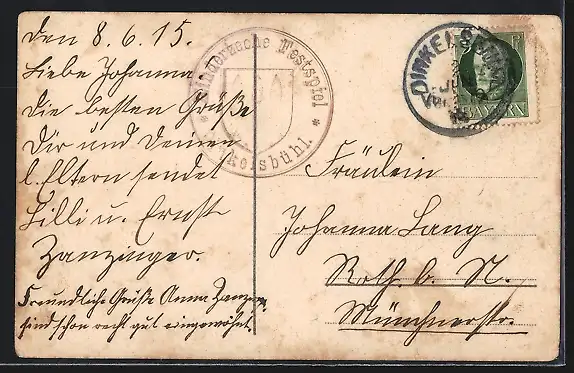 Den 8.6.15.
Liebe Johanna
Die besten Grüße
Dir und Deinen
l. Eltern sendet
Lilli u. Ernst
Zanzinger.
Freundliche Grüße Anna Zanzinger
sind schon recht gut eingewöhnt.
Kinderzeche Festspiel
Dinkelsbühl.
DINKELSBÜHL
BAYERN
Fräulein
Johanna Lang
Roth b. N.
Münchnerstr.